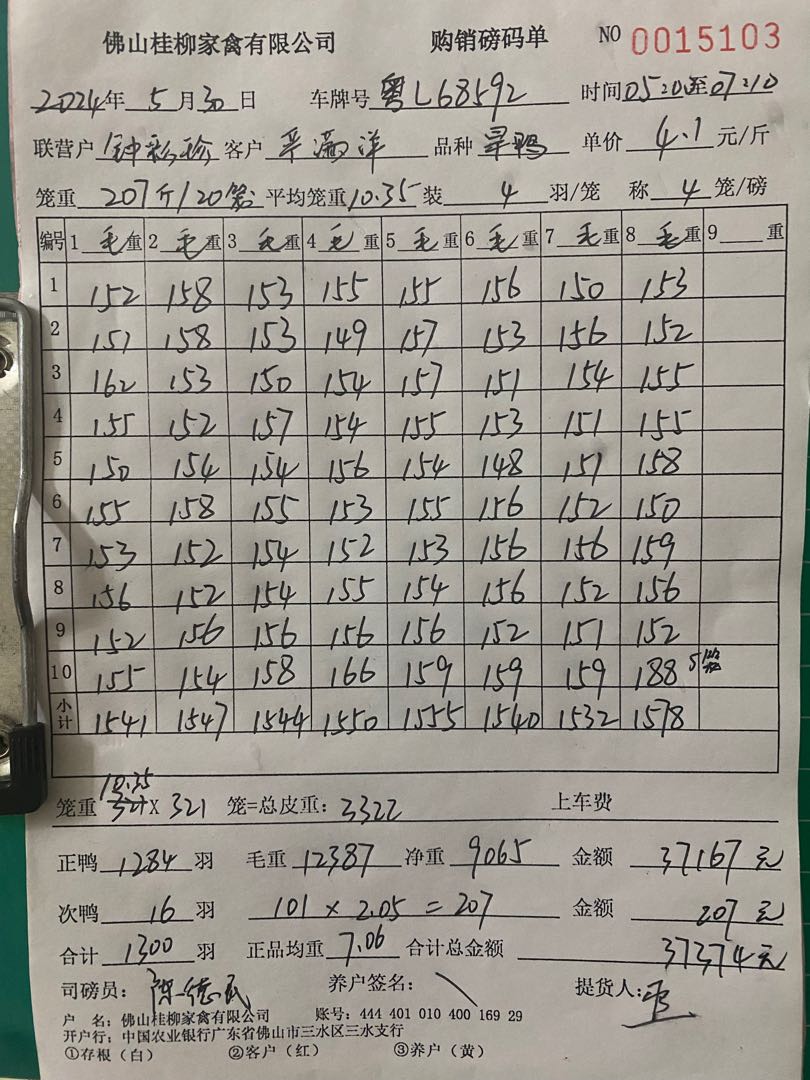 佛山桂柳家禽有限公司 购销磅码单 NO 0015103
2024年 5月30日 车牌号 粤L68592 时间05:20至07:10
联营户 钟彩珍 客户 满洋 品种 旱鸭 单价 4.1 元/斤
笼重 207斤/20笼 平均笼重10.35 装 4 羽/笼 称 4 笼/磅
编号 1 毛重 2 毛重 3 毛重 4 毛重 5 毛重 6 毛重 7 毛重 8 毛重 9 重
1 152 158 153 155 155 156 150 153
2 151 158 153 149 157 153 156 152
3 162 153 150 154 157 151 154 155
4 155 152 157 154 155 153 151 155
5 150 154 154 156 154 148 151 158
6 155 158 155 153 155 156 152 150
7 153 152 154 152 153 156 156 159
8 156 152 154 155 154 156 152 156
9 152 156 156 156 156 152 151 152
10 155 154 158 166 159 159 159 188 5笼
小计 1541 1547 1544 1550 1555 1540 1532 1578
笼重 10.35 X 321 笼=总皮重: 3322 上车费
正鸭 1284 羽 毛重 12387 净重 9065 金额 37167元
次鸭 16 羽 101 × 2.05 = 207 金额 207元
合计 1300 羽 正品均重 7.06 合计总金额 37374元
司磅员: 陈德民 养户签名: 提货人:
户 名: 佛山桂柳家禽有限公司 账号: 444 401 010 400 169 29
开户行: 中国农业银行广东省佛山市三水区三水支行
①存根(白) ②客户(红) ③养户(黄)